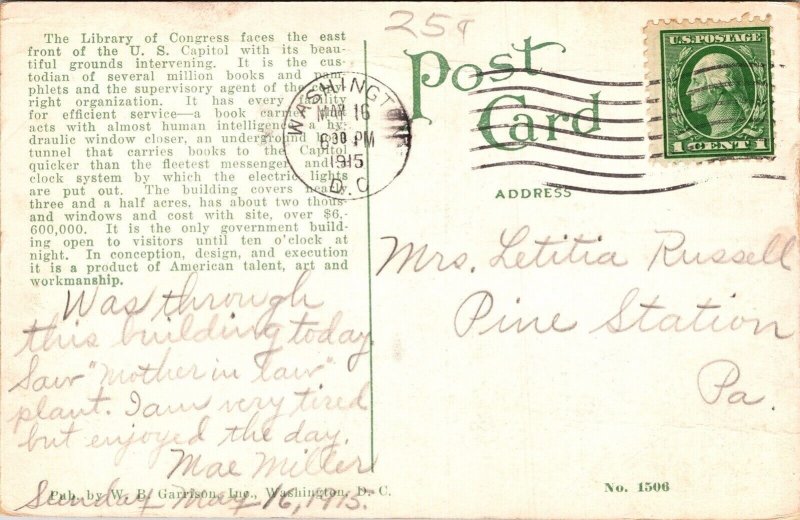 The Library of Congress faces the east
front of the U. S. Capitol with its beau-
tiful grounds intervening. It is the cus-
todian of several million books and pam-
phlets and the supervisory agent of the copy-
right organization. It has every facility
for efficient service—a book carrier that
acts with almost human intelligence, a hy-
draulic window closer, an underground
tunnel that carries books to the Capitol
quicker than the fleetest messenger and a
clock system by which the electric lights
are put out. The building covers nearly
three and a half acres, has about two thous-
and windows and cost with site, over $6,-
600,000. It is the only government build-
ing open to visitors until ten o'clock at
night. In conception, design, and execution
it is a product of American talent, art and
workmanship.
Was through
this building today.
Saw "Mother in law"
plant. I am very tired
but enjoyed the day.
Mae Miller
Pub. by W. B. Garrison, Inc., Washington, D. C.
Sunday May 16, 1915.
25¢
Post
Card
WASHINGTON
MAY 16
6 30 PM
1915
D. C.
U.S. POSTAGE
1 CENT 1
ADDRESS
Mrs. Letitia Russell
Pine Station
Pa.
No. 1506